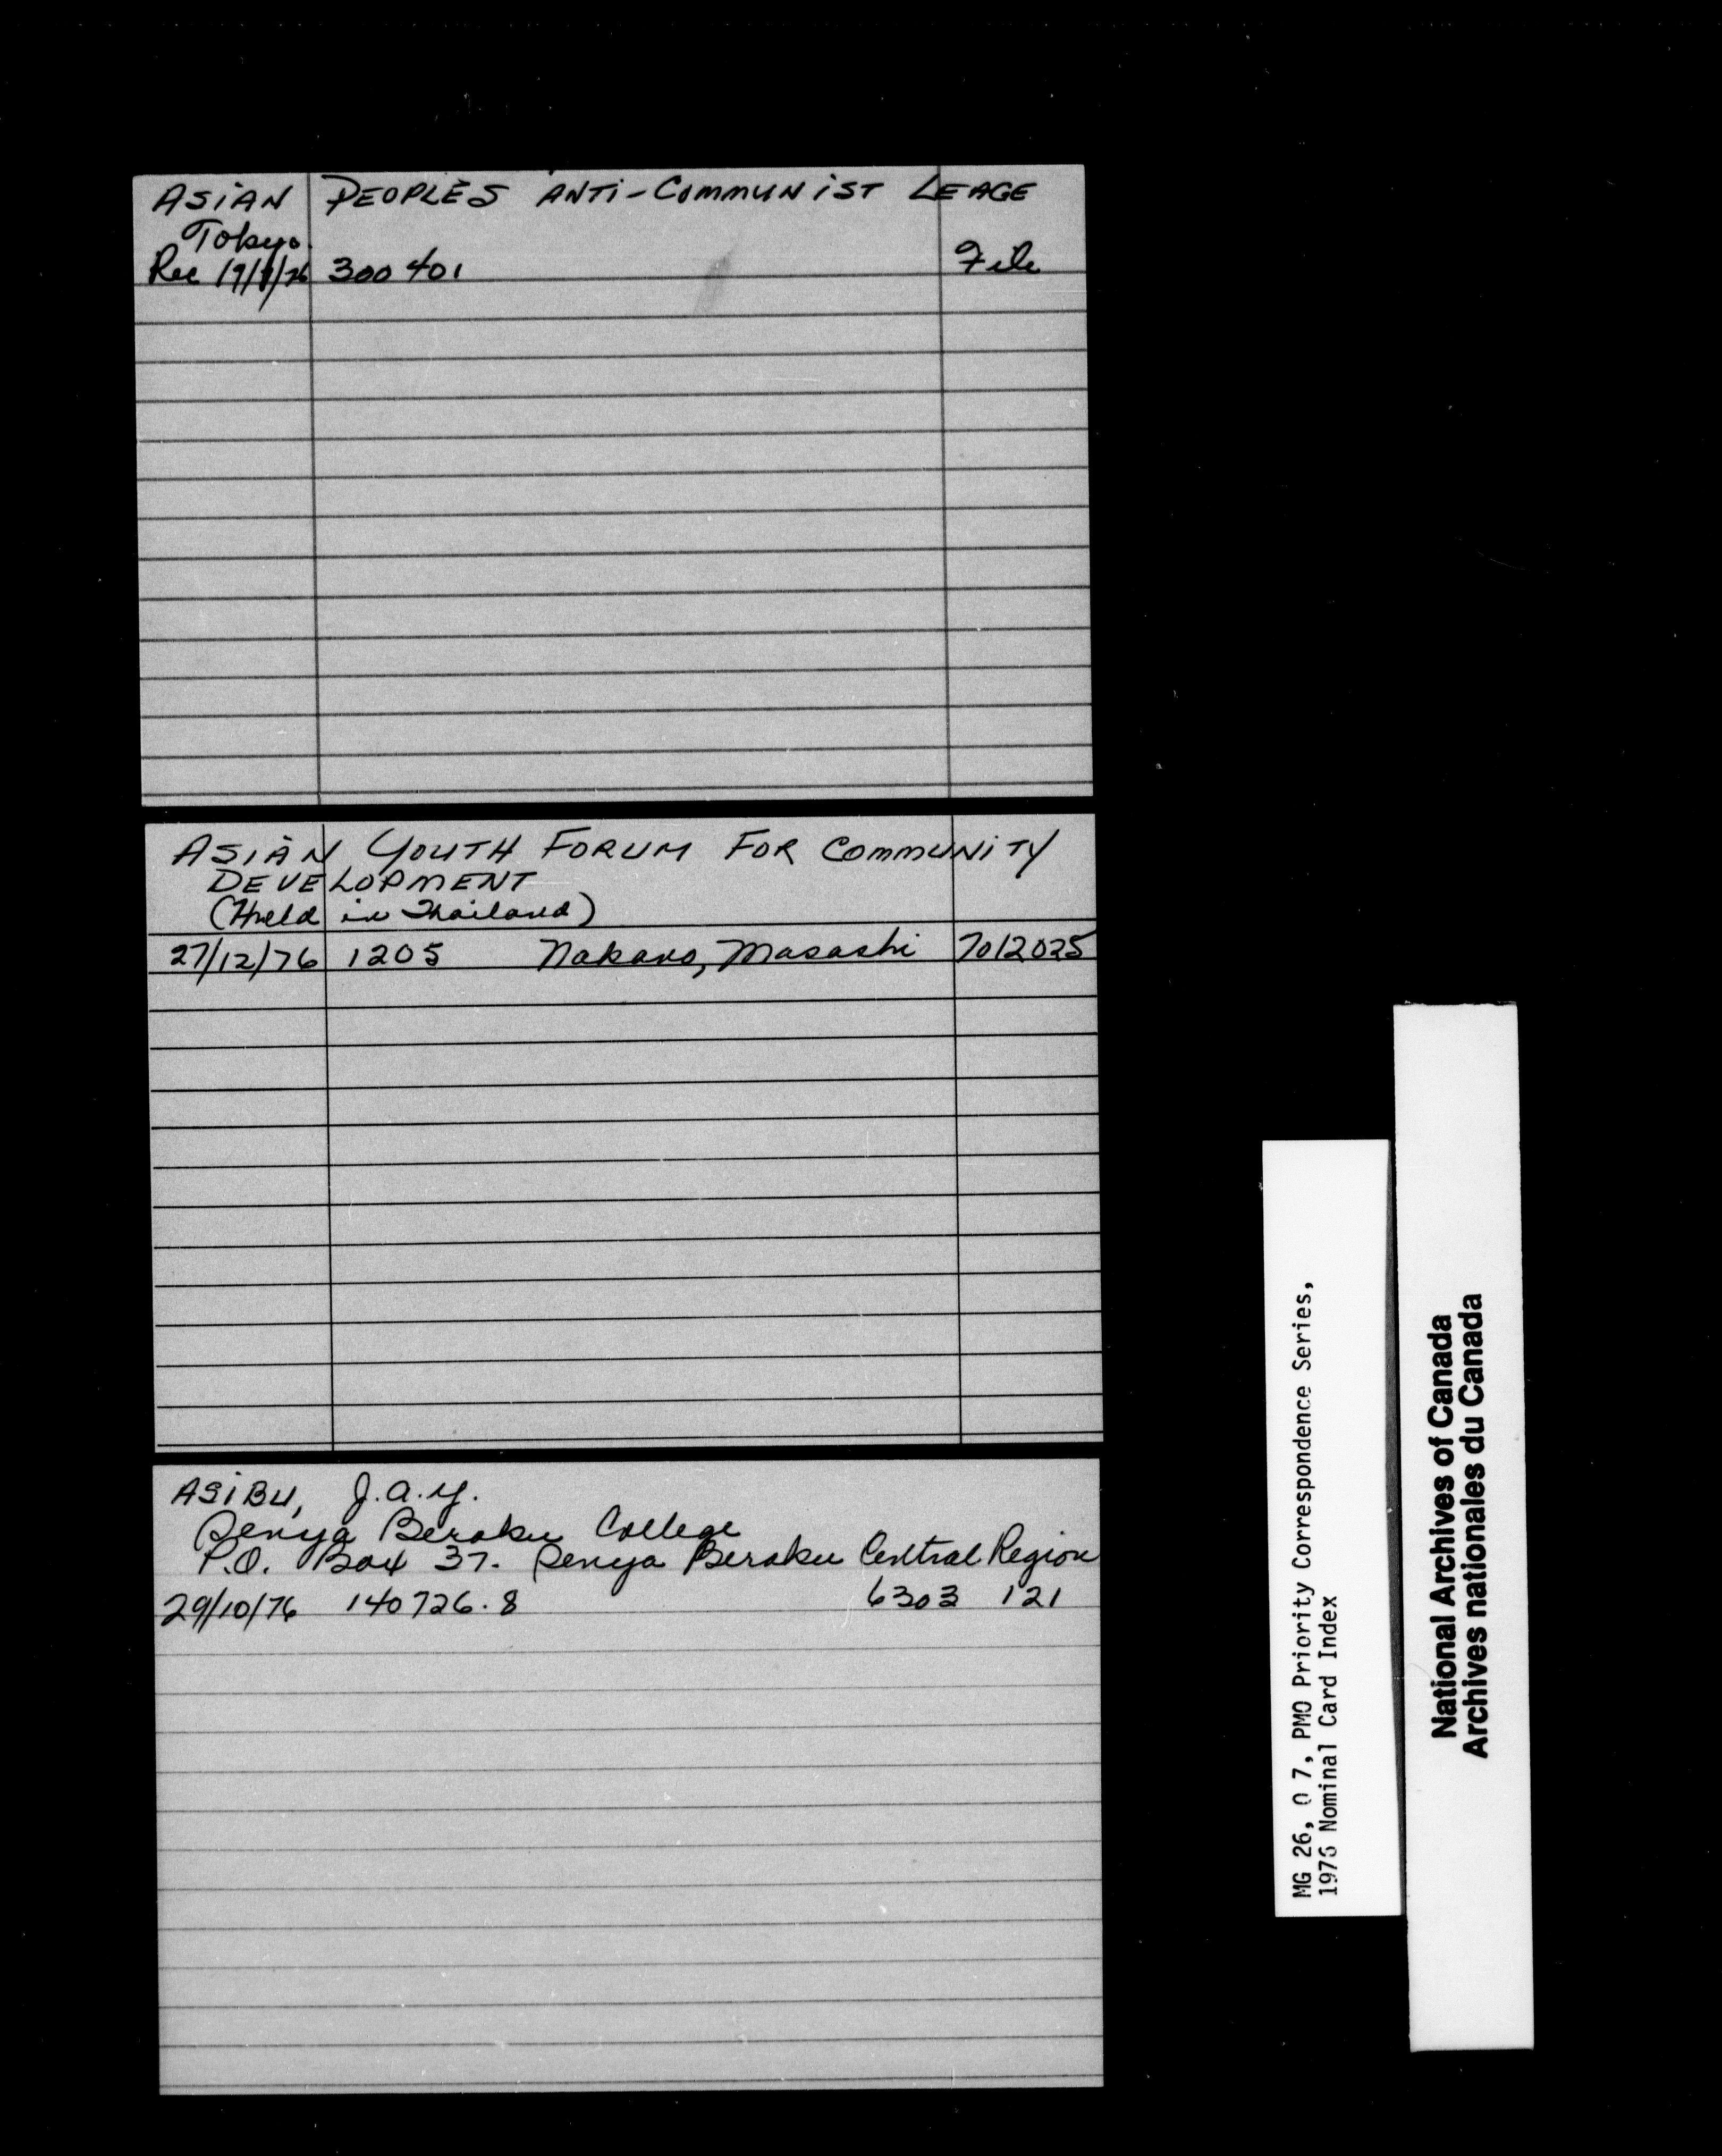 ASIAN PEOPLE'S ANTI-COMMUNIST LEAGE
Tokyo.
Rec 19/8/76 300 401 File
ASIAN YOUTH FORUM FOR COMMUNITY
DEVELOPMENT
(Held in Thailand)
27/12/76 1205 Nakano, Masashi 7012025
ASIBU, J.A.Y.
Senya Beraku College
P.O. Box 37. Senya Beraku Central Region
29/10/76 140726.8 6303 121
MG 26, O 7, PMO Priority Correspondence Series,
1976 Nominal Card Index
National Archives of Canada
Archives nationales du Canada